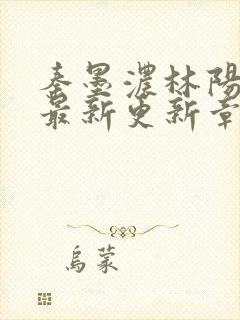 秦墨濃林陽
最新更新章
烏蒙